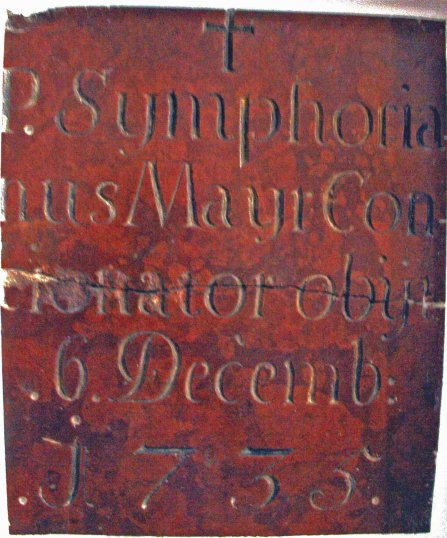 †
P. Symphoria
nus Mayr Con-
cionator obijt
.6. Decemb:
.1.735.